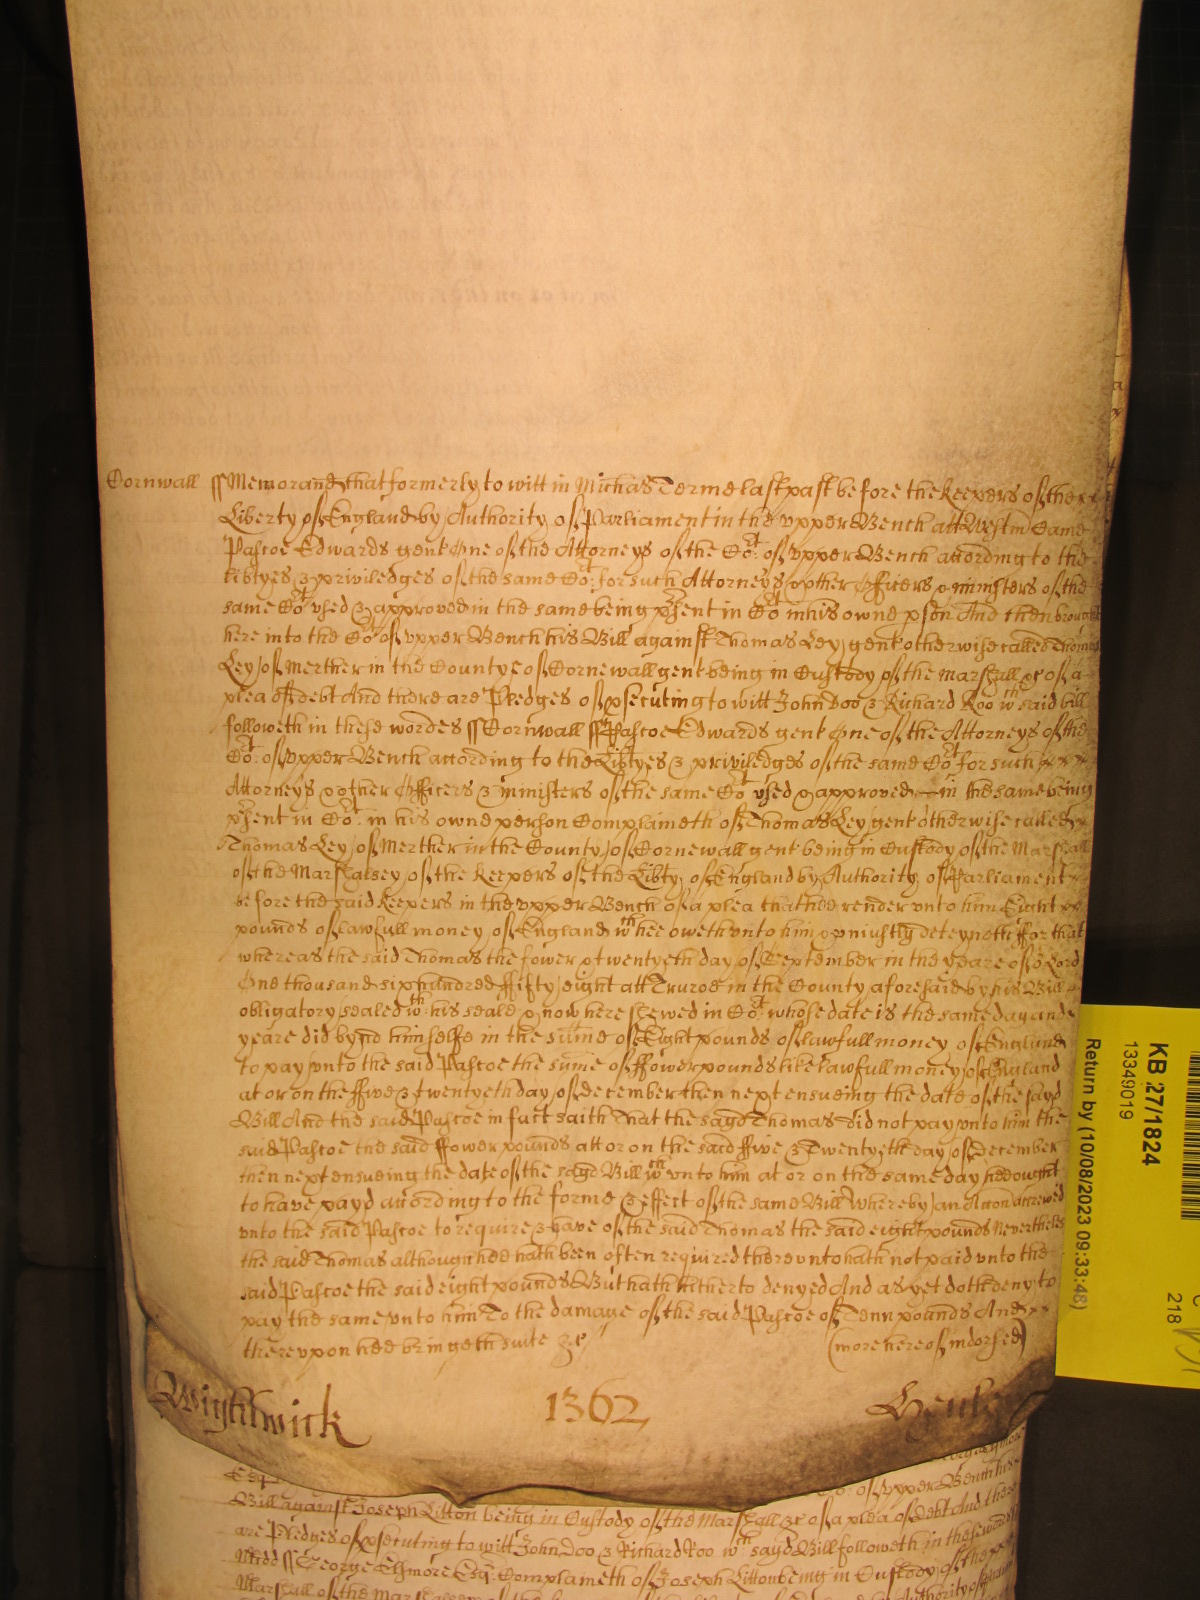 Cornwall ss Memorand that formerly to witt in Michas Terme last past before the Keepers of the
Liberty of England by Authority of Parliament in the vpper Bench att Westm Came
Pascoe Edwards gent One of the Attorneys of the Cot: of vpper Bench according to the
libtyes & priviledges of the same Cot: for such Attorneys & other Officers & ministers of the
same Cot vsed & approved in the same being psent in Cot in his owne pson And then brought
here into the Cot of vpper Bench his Bill against Thomas Ley gent otherwise called Thomas
Ley of Merther in the County of Cornewall gent being in Custody of the Marshall &c of a
plea of debt And there are Pledges of psecuting to witt John Doo & Richard Roo wch said bill
followeth in these wordes ss Cornwall ss Pascoe Edwards gent One of the Attorneys of the
Cot: of vpper Bench according to the Libtyes & priviledges of the same Cot for such
Attorneys & other Officers & ministers of the same Cot vsed & approved in the same being
psent in Cot: in his owne person Complaineth of Thomas Ley gent otherwise called
Thomas Ley of Merther in the County of Cornewall gent being in Custody of the Marshall
of the Marshalsey of the Keepers of the Libty of England by Authority of Parliament
before the said Keepers in the vpper Bench of a plea that hee render vnto him Eight
pounds of lawfull money of England wch hee oweth vnto him & uniustly deteyneth ffor that
whereas the said Thomas the fower & twentyeth day of September in the Yeare of or Lord
One thousand six hundred ffifty eight att Truroe in the County aforesaid by his Bill
obligatory sealed wth his seale & now here shewed in Cot whose date is the same day and
yeare did bynd himselfe in the sume of Eight pounds of lawfull money of England
to pay vnto the said Pascoe the sume of ffower pounds like lawfull money of England
at or on the ffive & twentyeth day of December then next ensueing the date of the sayd
Bill And the said Pascoe in fact saith That the sayd Thomas did not pay vnto him the
said Pascoe the said ffower pounds att or on the said ffive & Twentyeth day of December
then next ensueing the date of the sayd Bill wch vnto him at or on the same day hee ought
to have payd according to the forme & effect of the same Bill Whereby an Accon accrewed
vnto the said Pascoe to require & have of the said Thomas the said eight pounds Nevertheles
the said Thomas although hee hath been often required therevnto hath not paid vnto the
said Pascoe the said eight pounds But hath hitherto denyed And as yet doth deny to
pay the same vnto him To the damage of the said Pascoe of Tenn pounds And
therevpon hee bringeth suite &c (more hereof indorsed)
Wightwick 1362
Esq
of vpper Bench his
Bill against Joseph Litton being in Custody of the Marshall &c of a plea of Debt And there
are Pledges of psecuting to witt John Doo & Richard Roo wch sayd Bill followeth in these words
Midd ss George Ethmore Esqr Complaineth of Joseph Litton being in Custody of the
Marshall of the
KB 27/1824
13349019
Return by (10/08/2023 09:33:48)
218